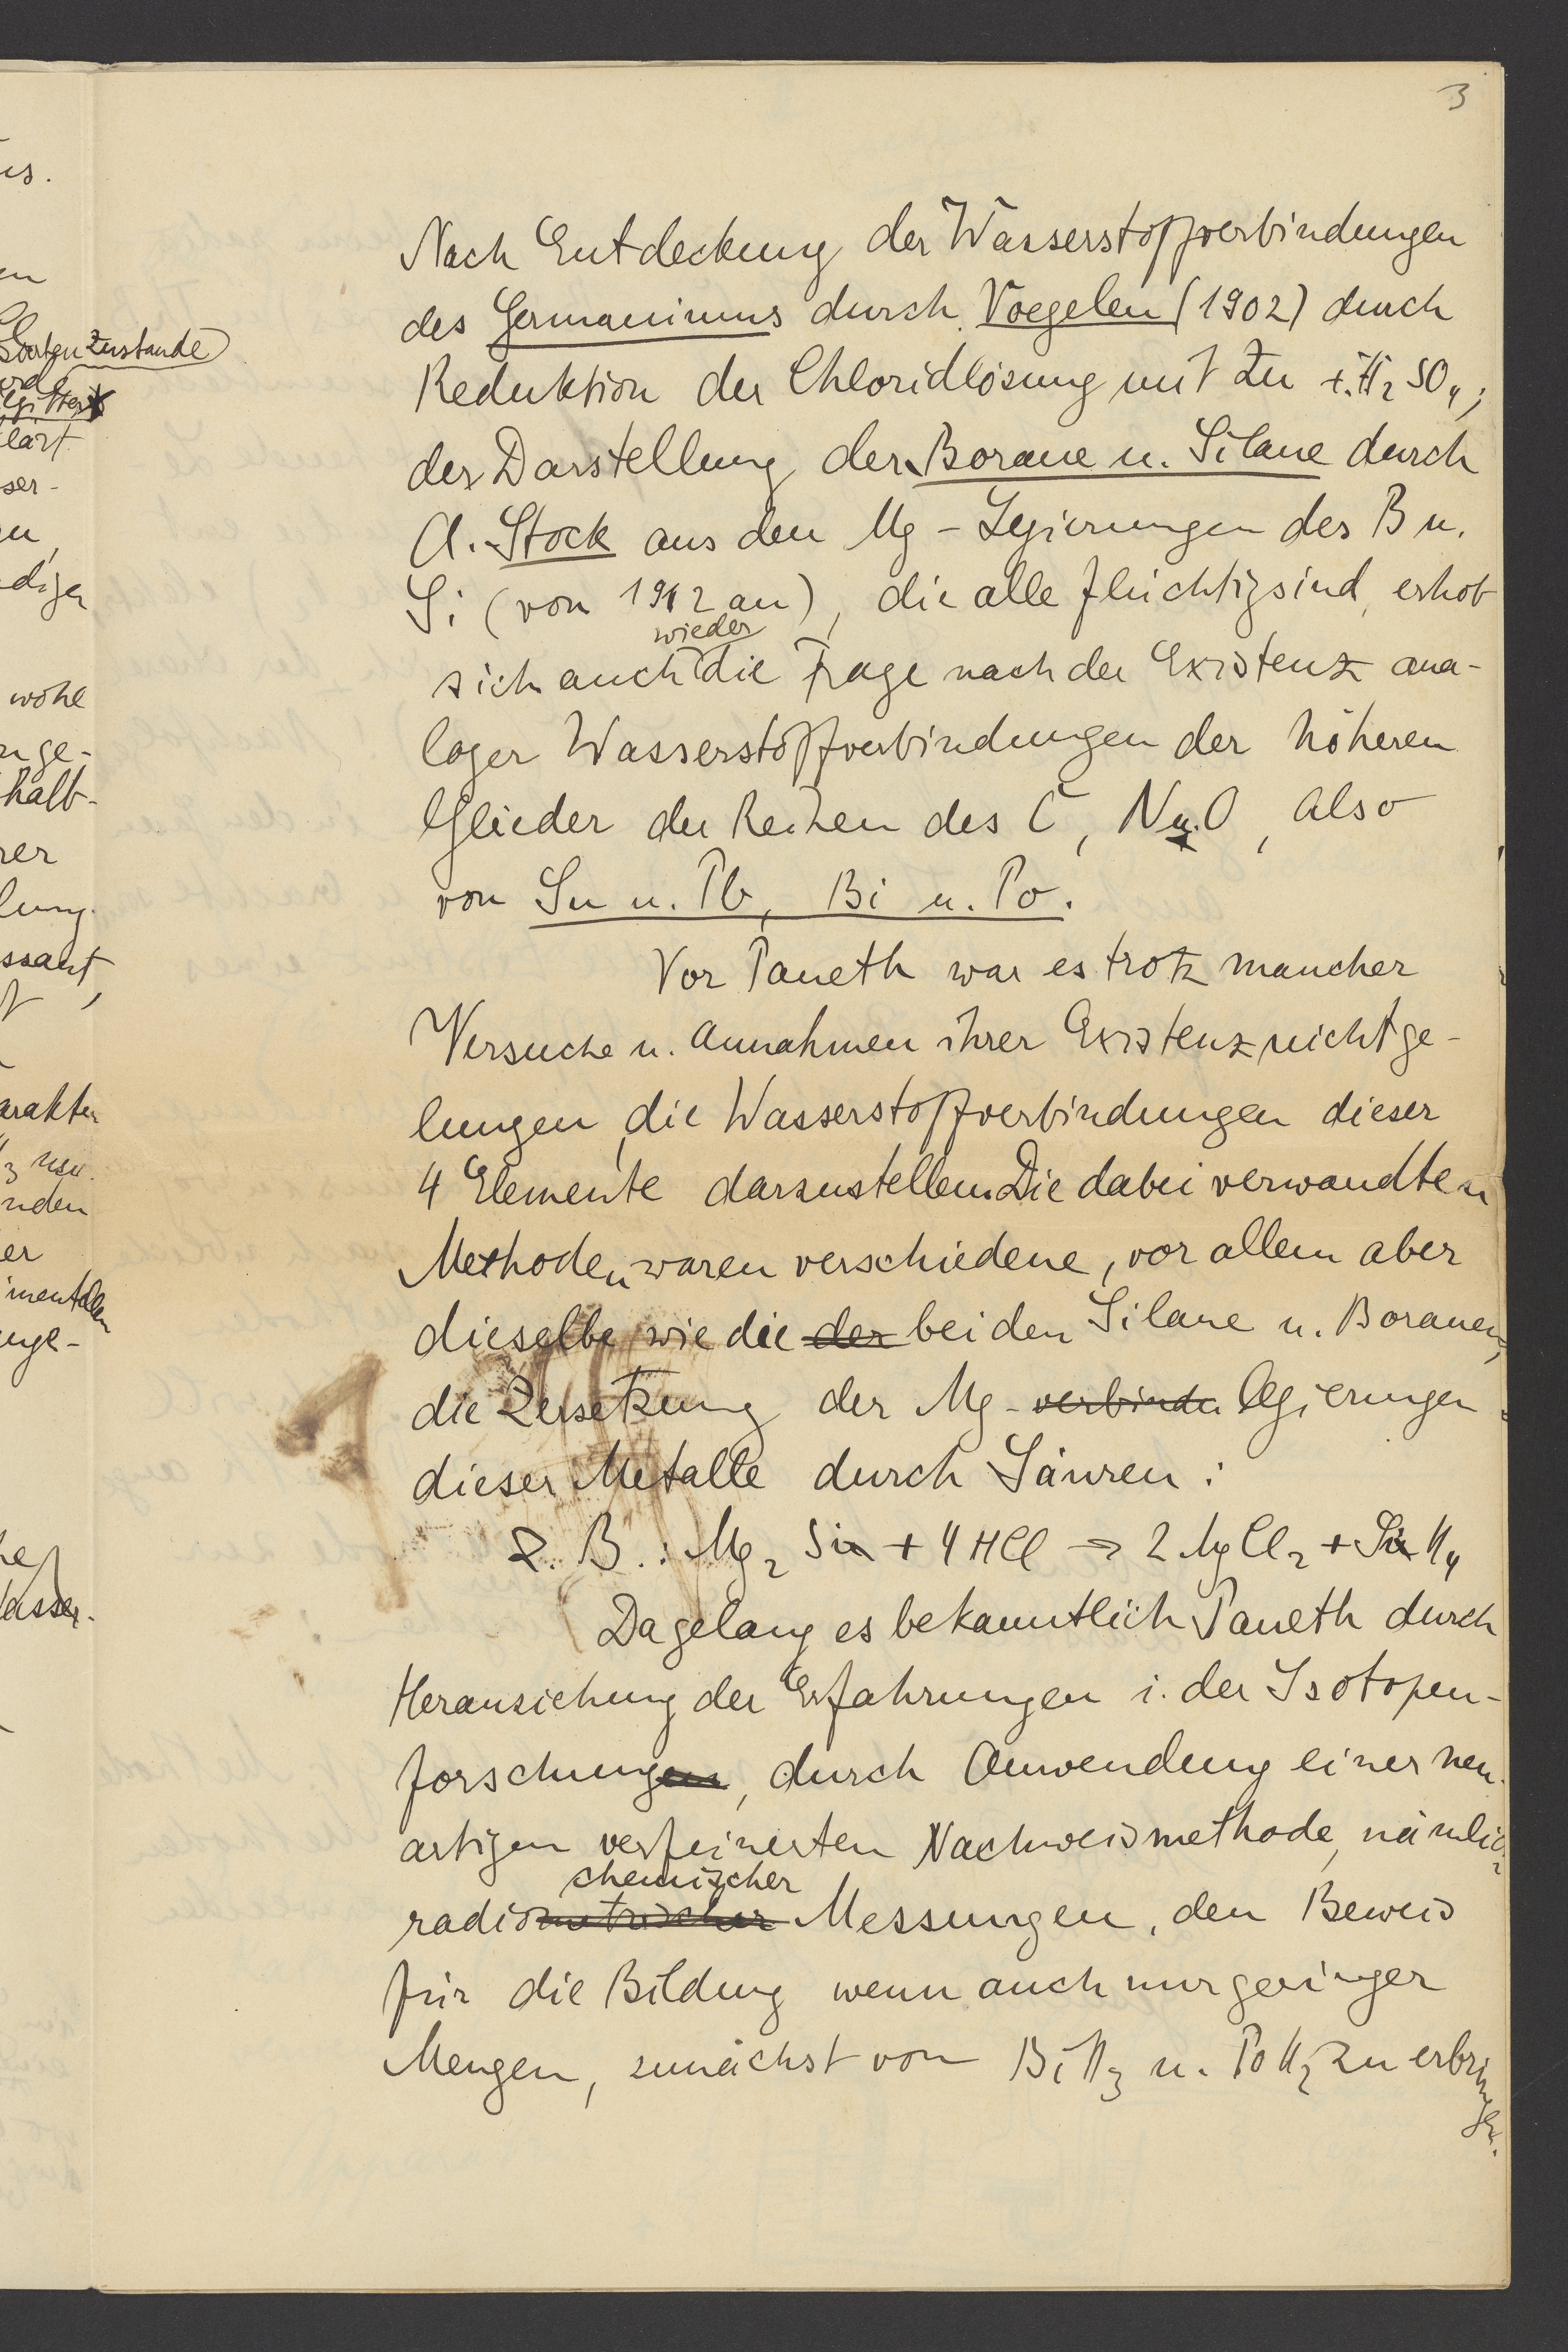 3
Nach Entdeckung der Wasserstoffverbindungen
des Germaniums durch Voegelen (1902) durch
Reduktion der Chloridlösung mit Zn + H₂SO₄;
der Darstellung der Borane u. Silane durch
A. Stock aus den Mg-Legierungen des B u.
Si (von 1912 an), die alle flüchtig sind, erhob
wieder
sich auch die Frage nach der Existenz ana-
loger Wasserstoffverbindungen der höheren
Glieder der Reihen des C, N u. O, also
von Sn u. Pb, Bi u. Po.
Vor Paneth war es trotz mancher
Versuche u. Annahmen ihrer Existenz nicht ge-
lungen, die Wasserstoffverbindungen dieser
4 Elemente darzustellen. Die dabei verwandten
Methoden waren verschiedene, vor allem aber
dieselbe wie die der bei den Silane u. Boranen,
die Zersetzung der Mg-verbindu legierungen
dieser Metalle durch Säuren:
z. B.: Mg₂ Sn + 4 HCl → 2 MgCl₂ + SnH₄
Da gelang es bekanntlich Paneth durch
Heranziehung der Erfahrungen i. der Isotopen-
forschungen, durch Anwendung einer neu-
artigen verfeinerten Nachweismethode, nämlich
chemischer
radiometrischer Messungen, den Beweis
für die Bildung wenn auch nur geringer
Mengen, zunächst von BiH₃ u. PoH₂ zu erbringen.
us.
en
zustande
lärt
ser-
en,
diger
wohl
nge-
halb-
rer
lung
ssant,
arakter
₃ usw.
nden
er
imentellen
inge-
he
Wasser-